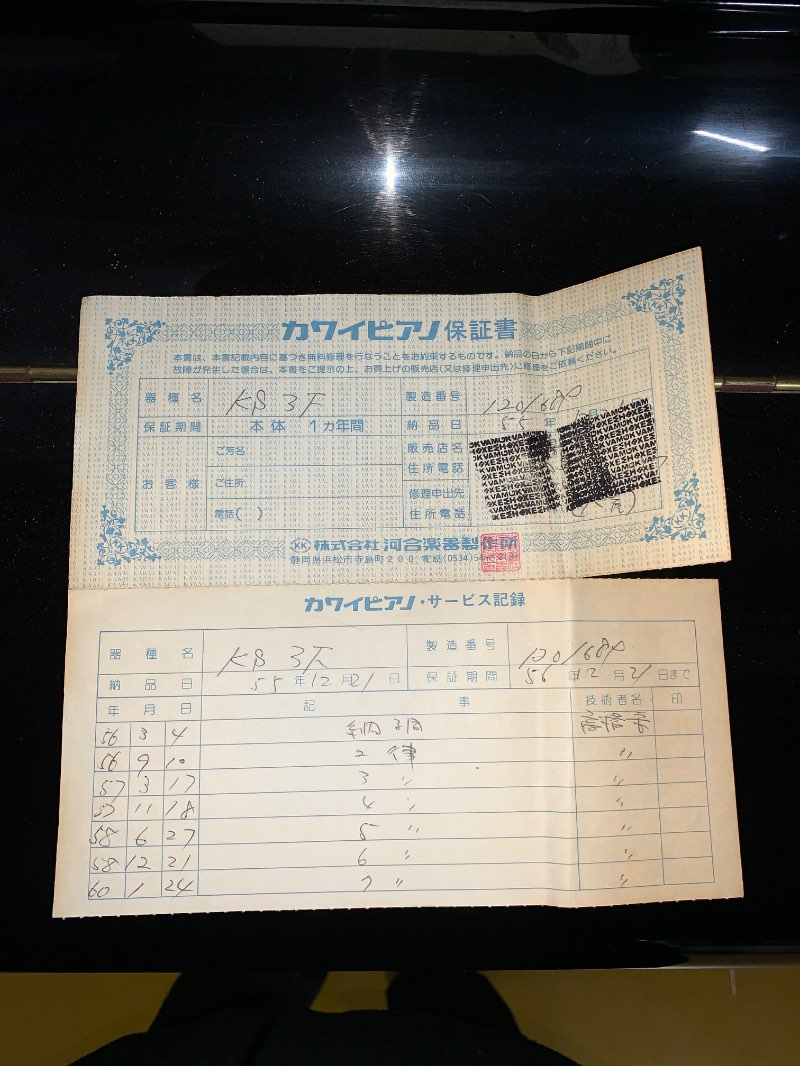 カワイピアノ保証書
本書は、本書記載内容に基づき無料修理を行なうことをお約束するものです。納品の日から下記期間中に
故障が発生した場合は、本書をご提示の上、お買上げの販売店(又は修理申出先)に修理をご依頼ください。
器種名 KS 3F 製造番号 1201684
保証期間 本体 1ヵ年間 納品日 55年
お客様 ご芳名 販売店名
住所電話
ご住所 修理申出先
電話( ) 住所電話
KK 株式会社 河合楽器製作所
静岡県浜松市寺島町200 電話(0534)
カワイピアノ・サービス記録
器種名 KS 3F 製造番号 1201684
納品日 55年12月21日 保証期間 56年12月21日まで
年月日 記事 技術者名 印
56 3 4 納調
56 9 10 2 律 〃
57 3 17 3 〃 〃
57 11 18 4 〃 〃
58 6 27 5 〃 〃
58 12 21 6 〃 〃
60 1 24 7 〃 〃